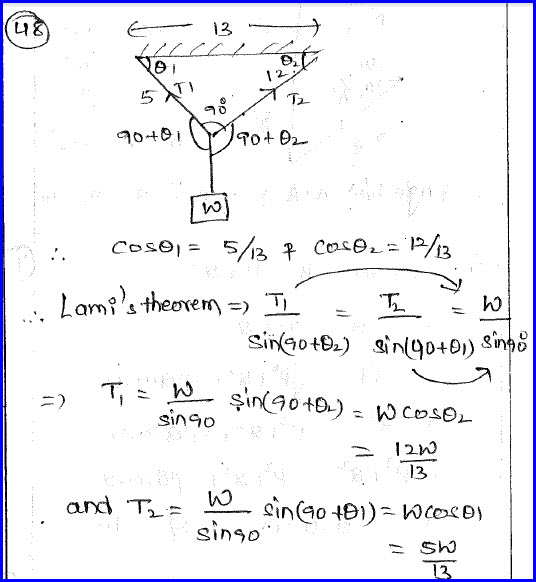 48
13
θ1 θ2
5 T1 12 T2
90°
90+θ1 90+θ2
W
∴ cosθ1 = 5/13 & cosθ2 = 12/13
∴ Lami's theorem => T1/sin(90+θ2) = T2/sin(90+θ1) = W/sin90°
=> T1 = W/sin90 sin(90+θ2) = W cosθ2
= 12W/13
and T2 = W/sin90 sin(90+θ1) = W cosθ1
= 5W/13